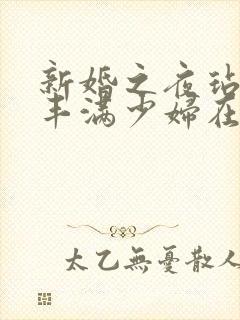 新婚之夜玷
丰满少妇在
太乙無憂散人